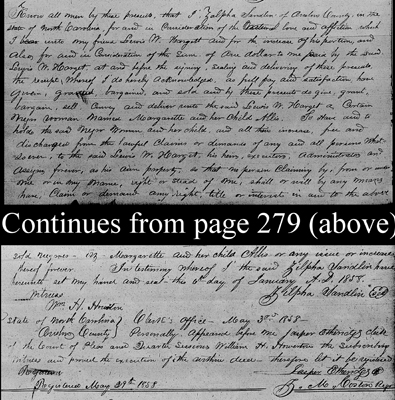 Know all men by these presents, that I Zilpha Sandlin of Onslow County, in the
State of North Carolina, for and in Consideration of the Natural love and affection which
I bear unto my friend Lewis W. Harget and for the increase of his portion and
Also, for and in Consideration of the Sum of One dollar to me paid by the said
Lewis W. Harget, at and before the signing, sealing and delivering of these presents
the receipt whereof I do hereby Acknowledge, as full pay and satisfaction, have
given, granted, bargained, and sold and by these presents do give, grant,
bargain, sell, Convey and deliver unto the said Lewis W. Harget, a Certain
Negro Woman Named Margarette and her Child Alles. To have and to
hold the said Negro Woman and her child, and all their increase, free and
discharged from the lawful Claims or demands of any and all persons What
soever, to the said Lewis W. Harget, his heirs, executors, Administrators and
Assigns forever, as his own property, so that no person Claiming by, from or under
me or in any Manner, right or stead of me, shall or will by any means
have, Claim or demand any right, title or interest in and to the above
Continues from page 279 (above)
sold Negroes - viz Margarette and her child Alles or any issue or increase
thereof forever. In testimony whereof I the said Zilpha Sandlin have
hereunto set my hand and seal the 6th day of January A.D. 1858.
Witness Zilpha Sandlin Seal
Wm. H. Houston
State of North Carolina Clerk's Office - May 3rd 1858
Onslow County Personally Appeared before me Jasper Etheridge Clerk
of the Court of Pleas and Quarter Sessions William H. Houston the Subscribing
Witness and proved the execution of the within deed - therefore let it be registered
Jasper Etheridge
Registered May 29th 1858 M. Register